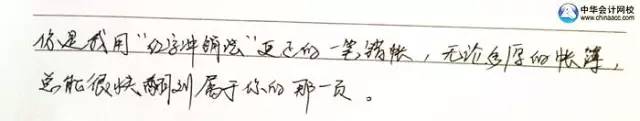 中华会计网校
www.chinaacc.com
你是我用“红字冲销法”更正的一笔错帐，无论多厚的帐簿，
总能很快翻到属于你的那一页。